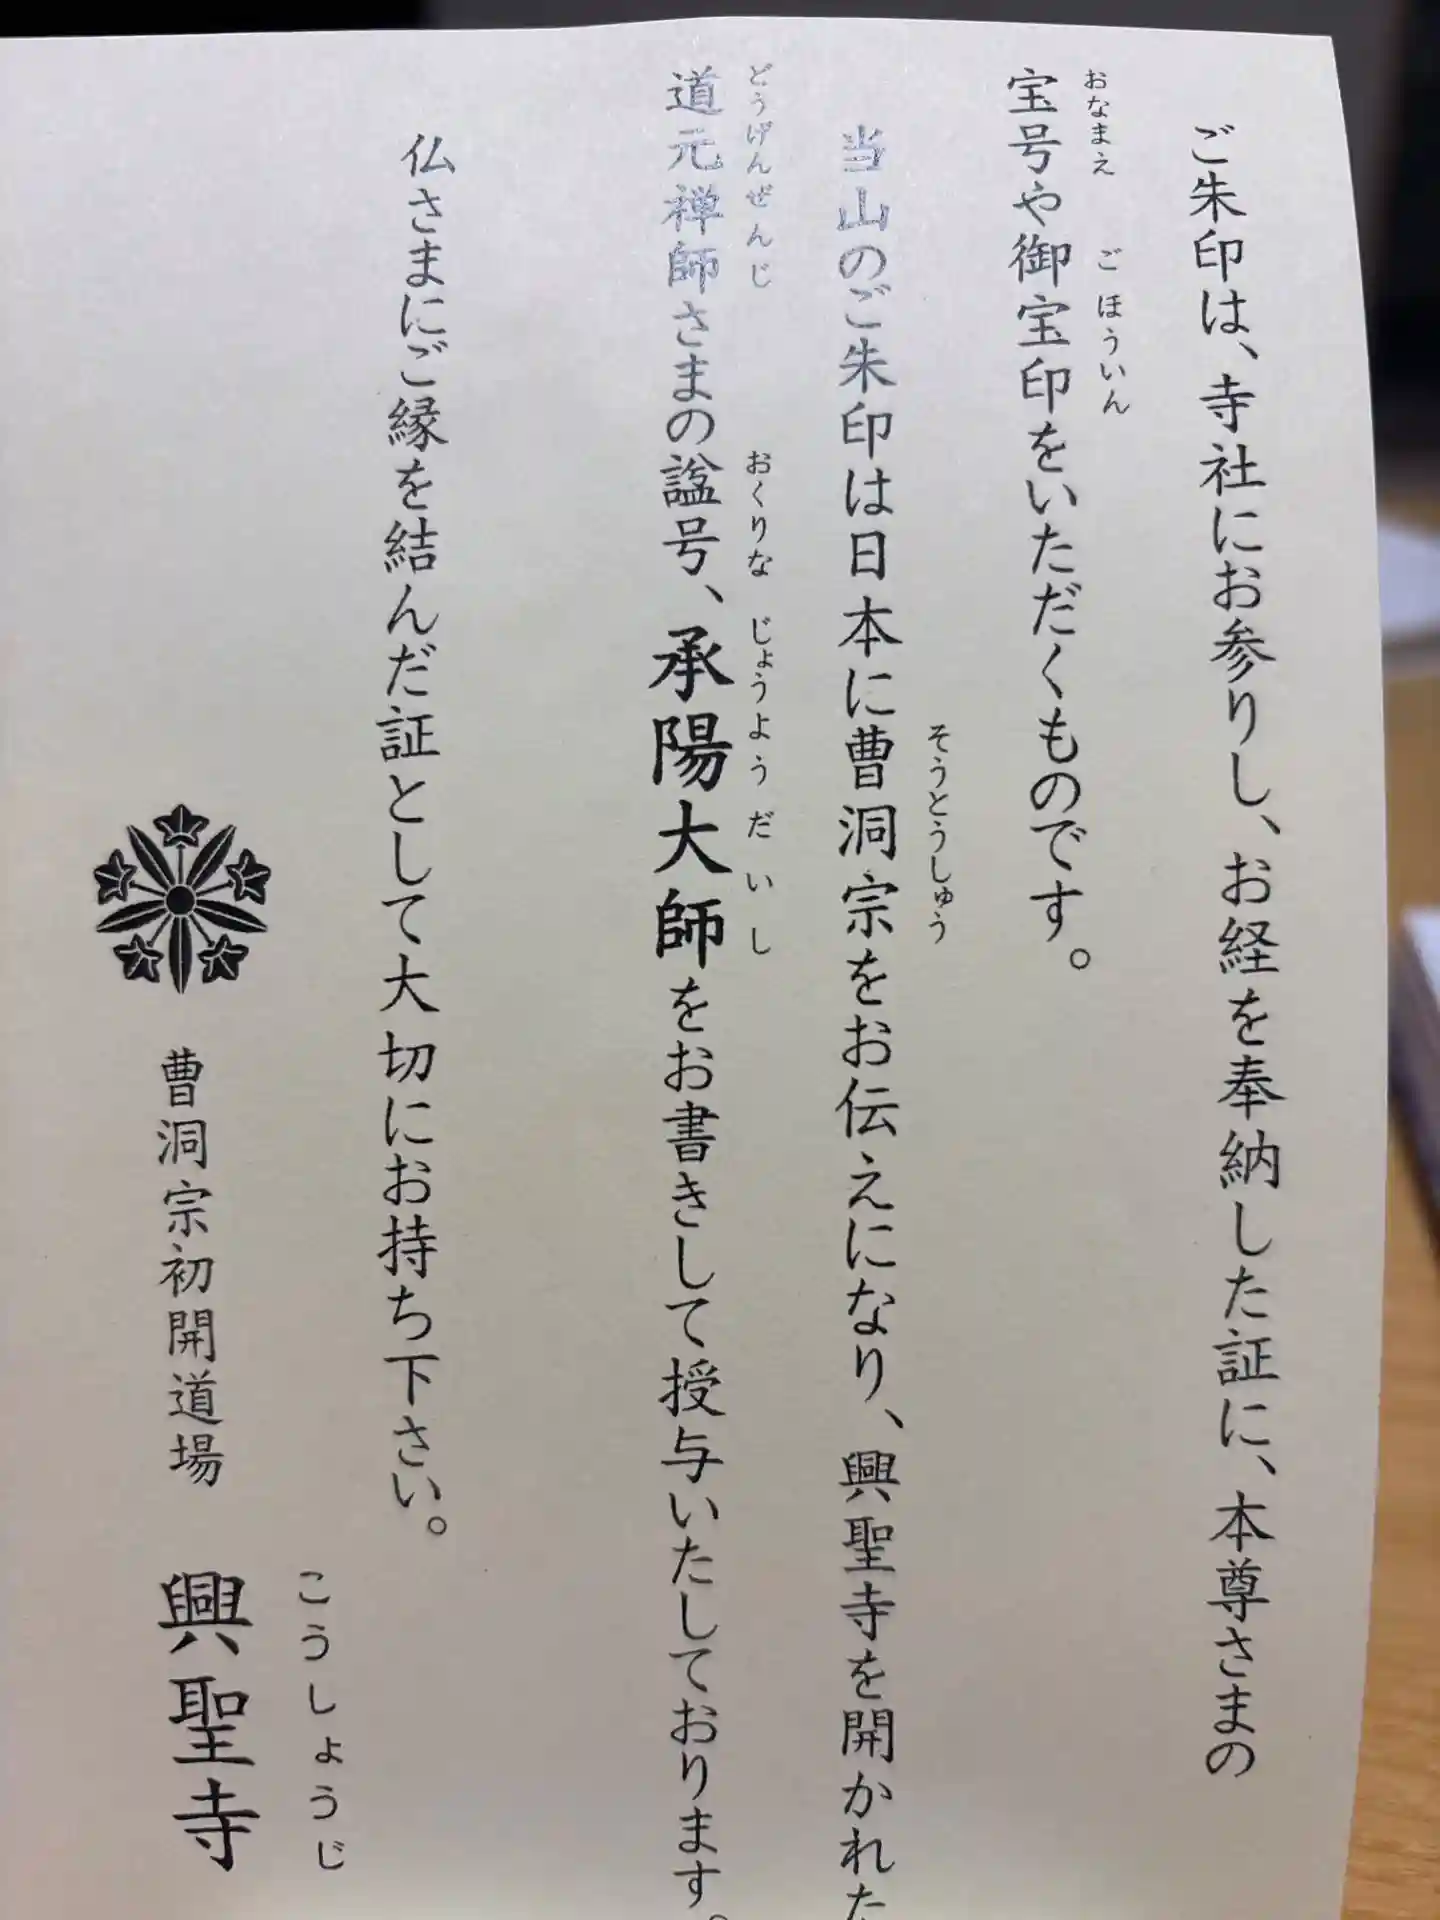 ご朱印は、寺社にお参りし、お経を奉納した証に、本尊さまの
おなまえ ごほういん
宝号や御宝印をいただくものです。
そうとうしゅう
当山のご朱印は日本に曹洞宗をお伝えになり、興聖寺を開かれた
どうげんぜんじ おくりな じょうようだいし
道元禅師さまの諡号、承陽大師をお書きして授与いたしております。
仏さまにご縁を結んだ証として大切にお持ち下さい。
こうしょうじ
曹洞宗初開道場 興聖寺